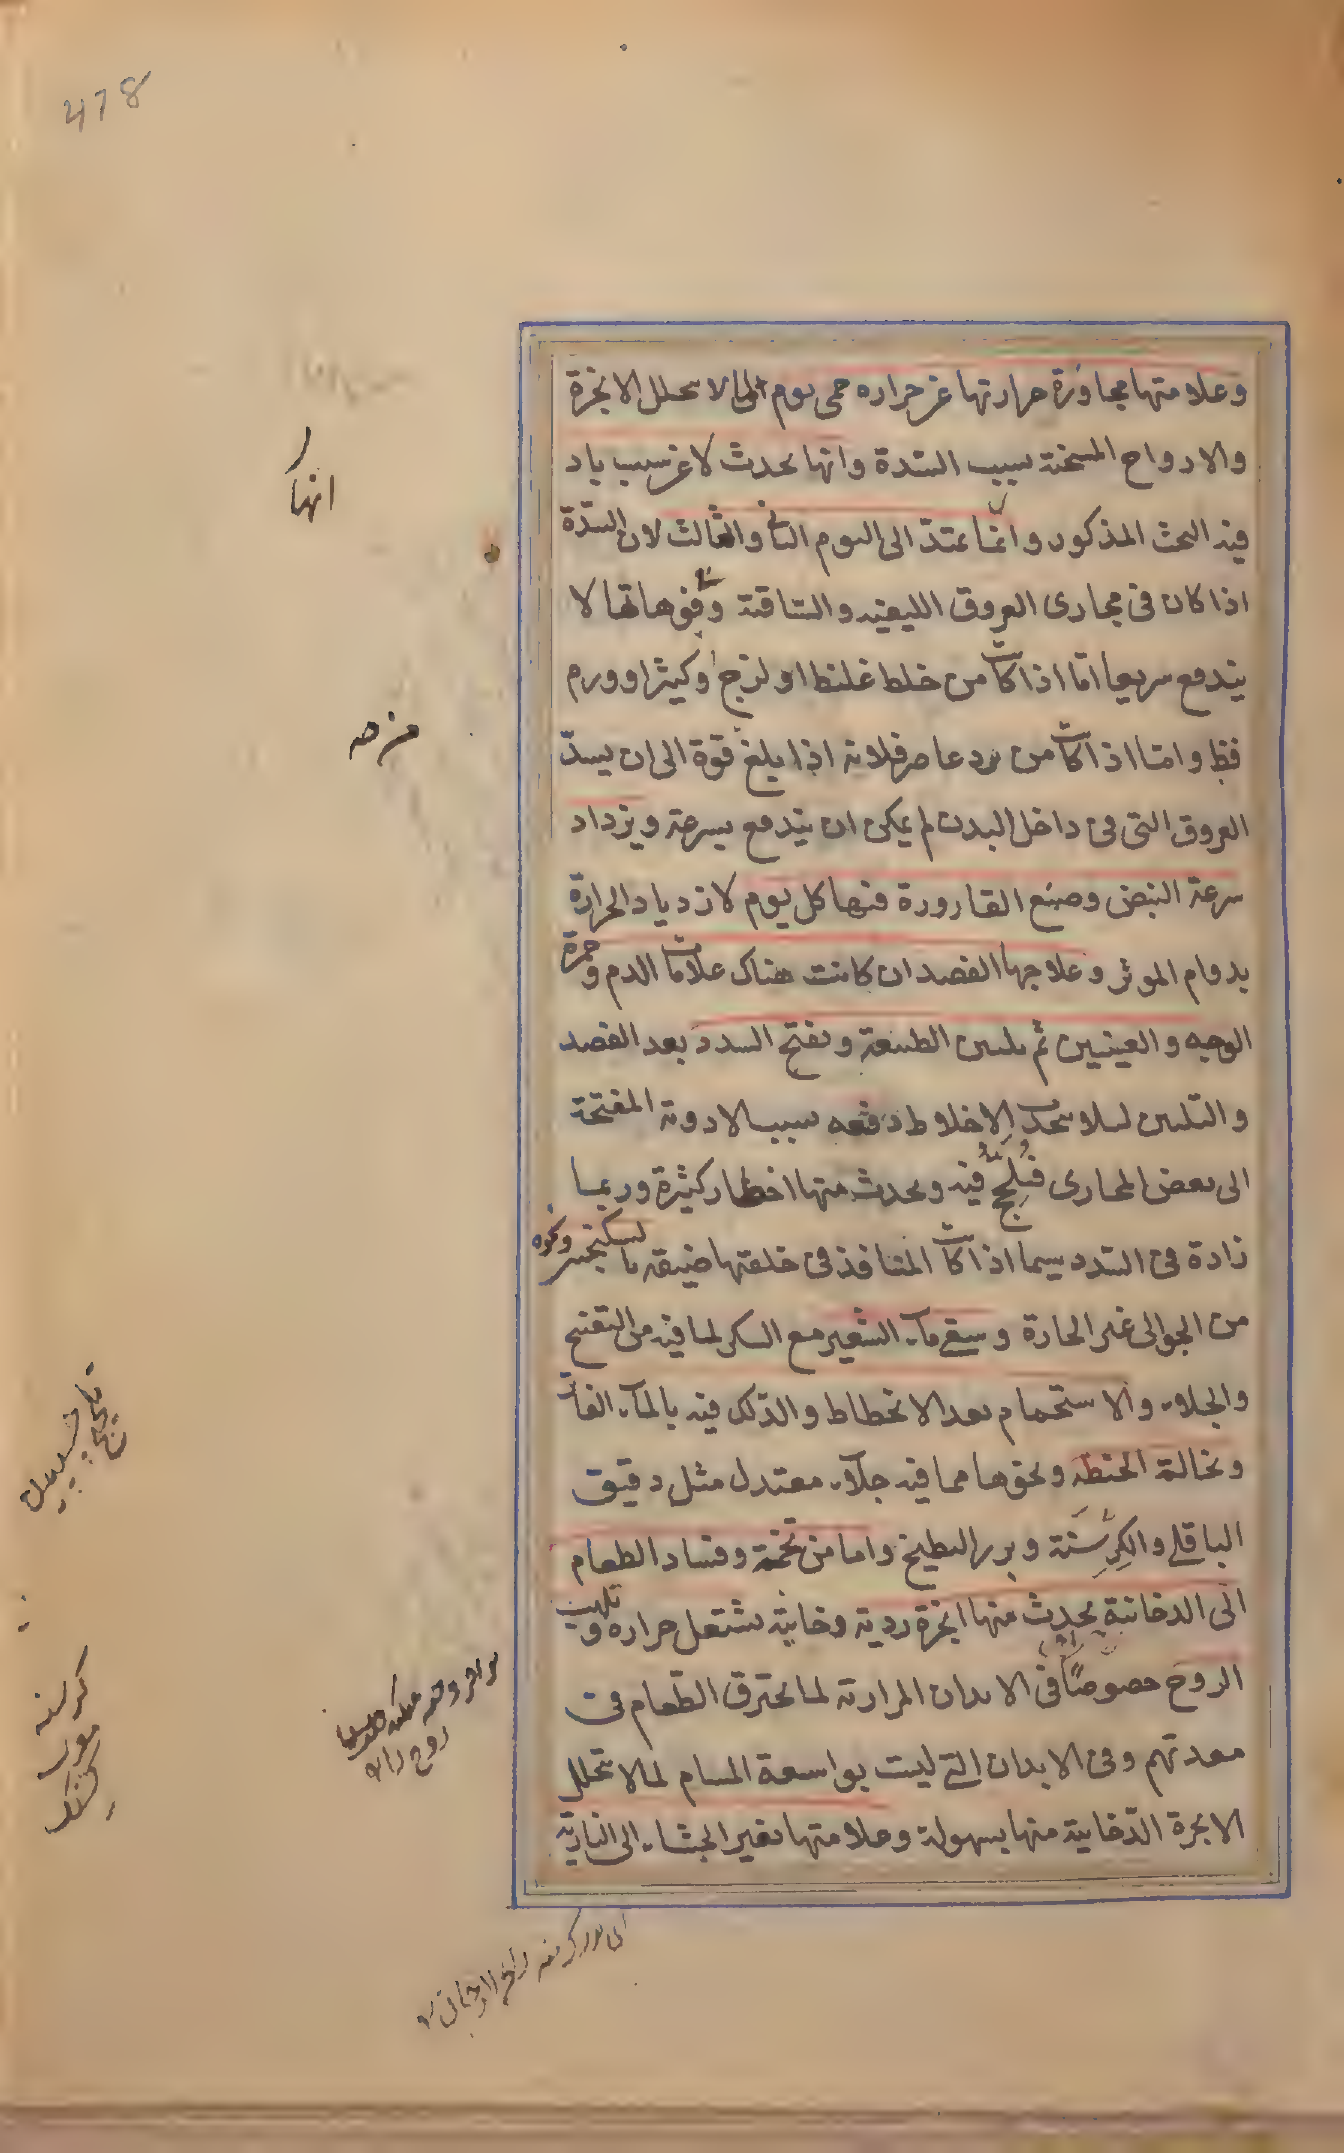 478
وعلامتها مجاوزة حرارتها عن حراره حمى يوم لما لا تتحلل الابخرة
والارواح المسخنة بسبب السدة وانها تحدث لا عن سبب باد
فيه البحث المذكور وانما تمتد الى اليوم الثانى والثالث لان السدة
اذا كان فى مجارى العروق الليفيه والساقية وفوهاتها لا
يندفع سريعا اما اذا كانت من خلط غليظ او لزج او كثير او ورم
فظ واما اذا كانت من برد عاصر فلانه اذا بلغ قوة الى ان يسد
العروق التى فى داخل البدن لم يمكن ان يندفع بسرعة ويزداد
سرعة النبض وصبغ القارورة فيها كل يوم لازدياد الحرارة
بدوام الموثر وعلاجها الفصد ان كانت هناك علامات الدم وحمرة
الوجه والعينين ثم تليين الطبيعة وتفتح السدد بعد الفصد
والتليين لئلا تنجذب الاخلاط دفعه بسبب الادوية المفتحة
الى بعض المجارى فيلحج فيه ويحدث منها اخطار كثيرة وربما
زادة فى السدد سيما اذا كانت المنافذ فى خلقتها ضيقه بالسكنجبين ونحوه
من الجوالى غير الحارة وسقى ماء الشعير مع السكر لما فيه من التفتيح
والجلاء والاستحمام بعد الانحطاط والدلك فيه بالماء الفاتر
ونخالة الحنطه ونحوها مما فيه جلاء معتدل مثل دقيق
الباقلى والكرسنة وبزر البطيخ واما من تخمة وفساد الطعام
الى الدخانية يحدث منها ابخرة ردية دخانية تشتعل حراره وتلهب
الروح خصوصا فى الابدان المرارية لما يحترق الطعام فى
معدتهم وفى الابدان التى ليست بواسعة المسام لما لا تتحلل
الابخرة الدخانية منها بسهولة وعلامتها تغير الجشاء الى النارية
انها
كرسنه
معرب